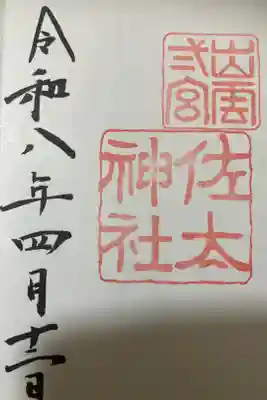 出雲
弍宮
佐太
神社
令和八年四月十日